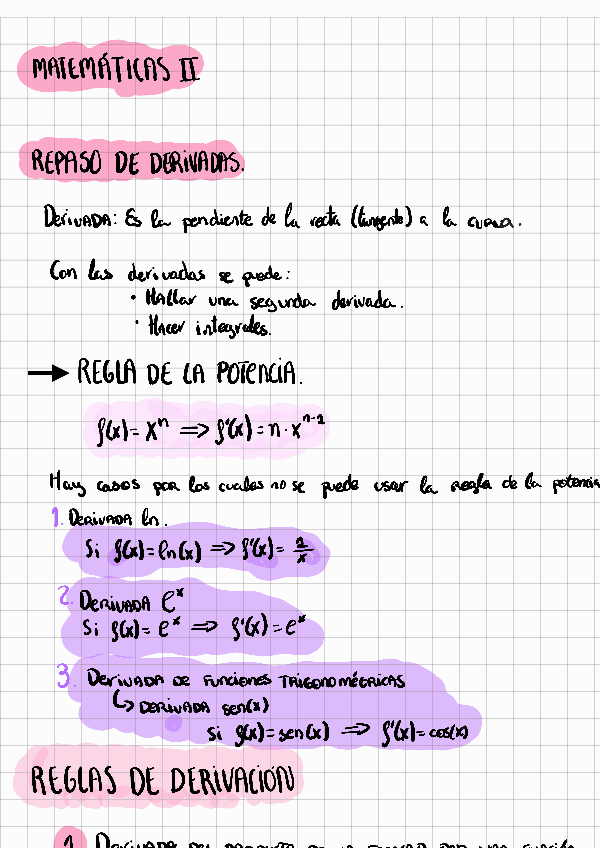 MATEMÁTICAS II
REPASO DE DERIVADAS.
DERIVADA: Es la pendiente de la recta (tangente) a la curva.
Con las derivadas se puede:
• Hallar una segunda derivada.
• Hacer integrales.
→ REGLA DE LA POTENCIA.
f(x) = xⁿ ⇒ f'(x) = n · xⁿ⁻¹
Hay casos por los cuales no se puede usar la regla de la potencia
1. DERIVADA ln.
Si f(x) = ln(x) ⇒ f'(x) = 1/x
2. DERIVADA eˣ
Si f(x) = eˣ ⇒ f'(x) = eˣ
3. DERIVADA DE FUNCIONES TRIGONOMÉTRICAS
↳ DERIVADA sen(x)
Si f(x) = sen(x) ⇒ f'(x) = cos(x)
REGLAS DE DERIVACIÓN